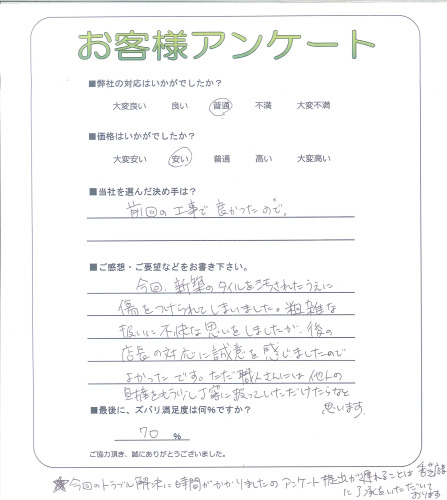 お客様アンケート
■弊社の対応はいかがでしたか?
大変良い 良い 普通 不満 大変不満
■価格はいかがでしたか?
大変安い 安い 普通 高い 大変高い
■当社を選んだ決め手は?
前回の工事で良かったので。
■ご感想・ご要望などをお書き下さい。
今回、新築のタイルを汚されたうえに
傷をつけられてしまいました。粗雑な
扱いに不快な思いをしましたが、後の
店長の対応に誠意を感じましたので
よかったです。ただ職人さんには他人の
ももう少し丁寧に扱っていただけたらなと
思います。
■最後に、ズバリ満足度は何%ですか?
70 %
ご協力頂き、誠にありがとうございました。
★今回のトラブル解決に時間がかかりましたのでアンケート提出が遅れることは
に了承をいただいて
おります